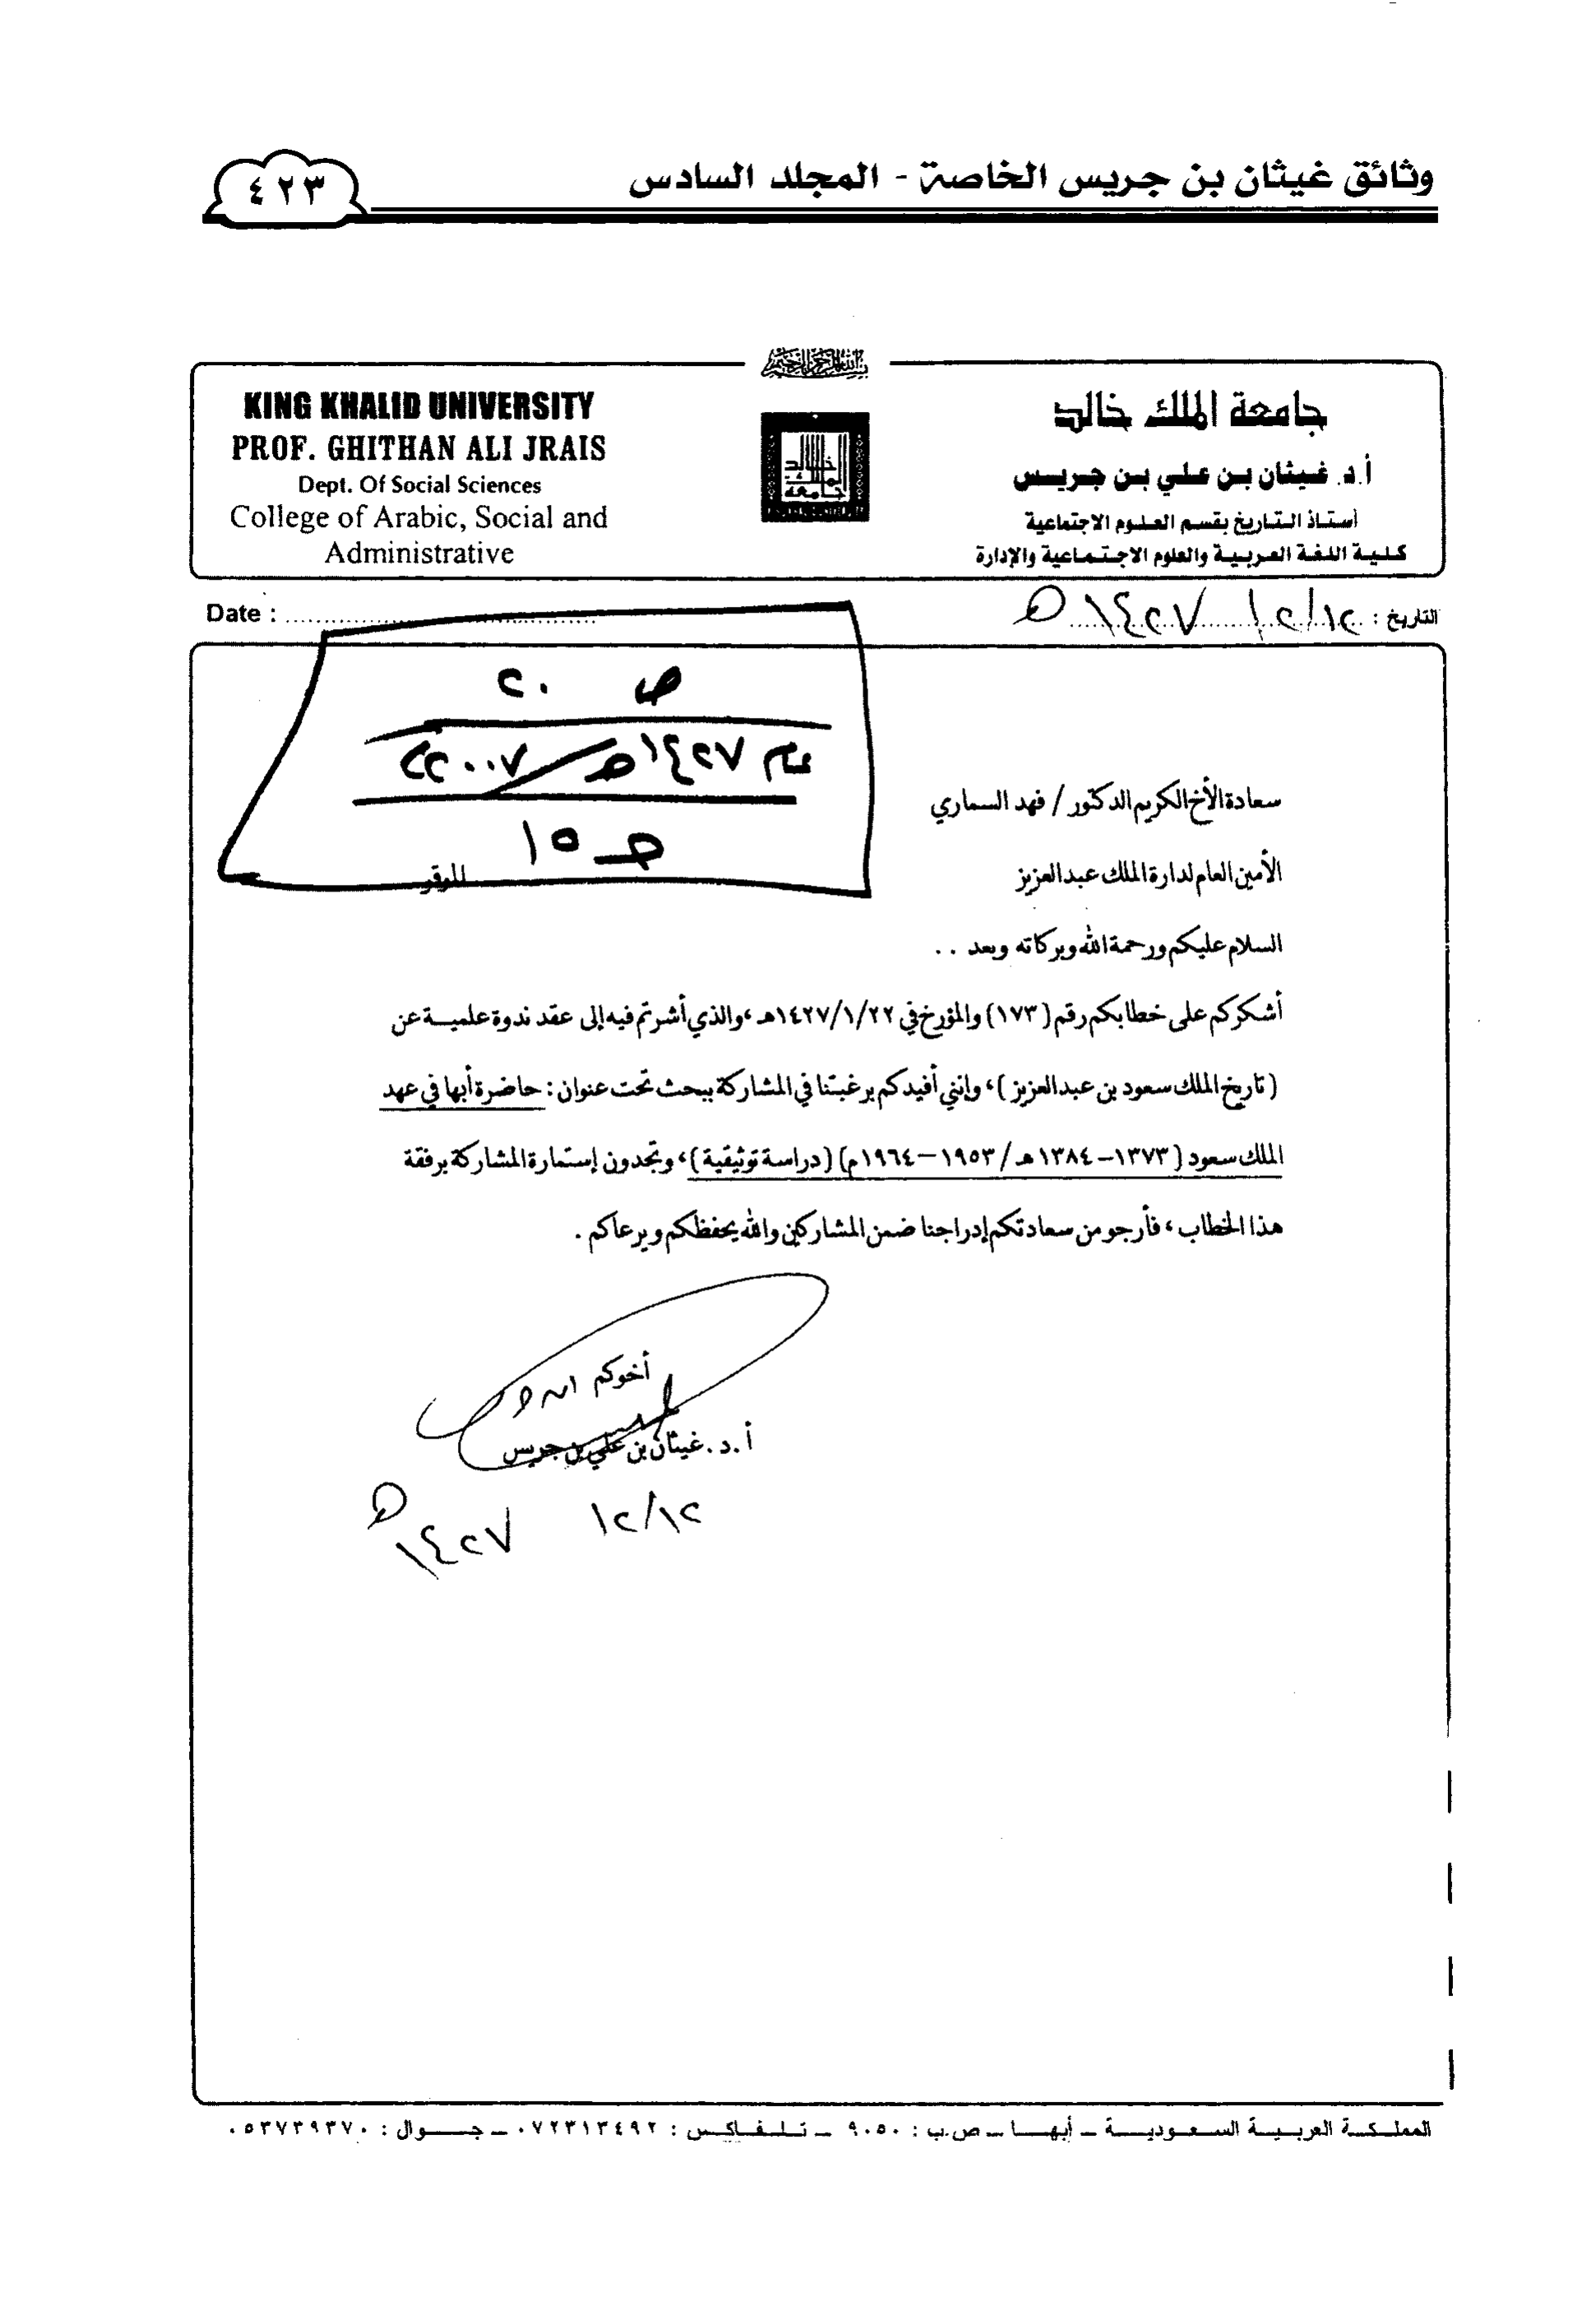 وثائق غيثان بن جريس الخاصة - المجلد السادس
٤٢٣
بسم الله الرحمن الرحيم
جامعة الملك خالد
أ.د. غيثان بن علي بن جريس
أستاذ التاريخ بقسم العلوم الاجتماعية
كلية اللغة العربية والعلوم الاجتماعية والإدارة
KING KHALID UNIVERSITY
PROF. GHITHAN ALI JRAIS
Dept. Of Social Sciences
College of Arabic, Social and
Administrative
التاريخ : ١٢/١٢/ ١٤٢٧هـ
Date :
ص ٢٠
عام ١٤٢٧هـ/٢٠٠٧م
سعادة الأخ الكريم الدكتور / فهد السماري
الأمين العام لدارة الملك عبدالعزيز الموقر
السلام عليكم ورحمة الله وبركاته وبعد ..
أشكركم على خطابكم رقم (١٧٣) والمؤرخ في ١٤٢٧/١/٢٢هـ، والذي أشرتم فيه إلى عقد ندوة علمية عن
(تاريخ الملك سعود بن عبدالعزيز)، وإنني أفيدكم برغبتنا في المشاركة ببحث تحت عنوان : حاضرة أبها في عهد
الملك سعود (١٣٧٣–١٣٨٤هـ / ١٩٥٣–١٩٦٤م) (دراسة توثيقية)، وتجدون إستمارة المشاركة برفقة
هذا الخطاب، فأرجو من سعادتكم إدراجنا ضمن المشاركين والله يحفظكم ويرعاكم .
أخوكم
أ.د. غيثان بن علي بن جريس
١٢/١٢ ١٤٢٧هـ
المملكة العربية السعودية – أبها – ص.ب : ٩٠٥٠ – تلفاكس : ٠٧٢٣١٣٤٩٢ – جوال : ٠٥٣٧٣٩٣٧٠